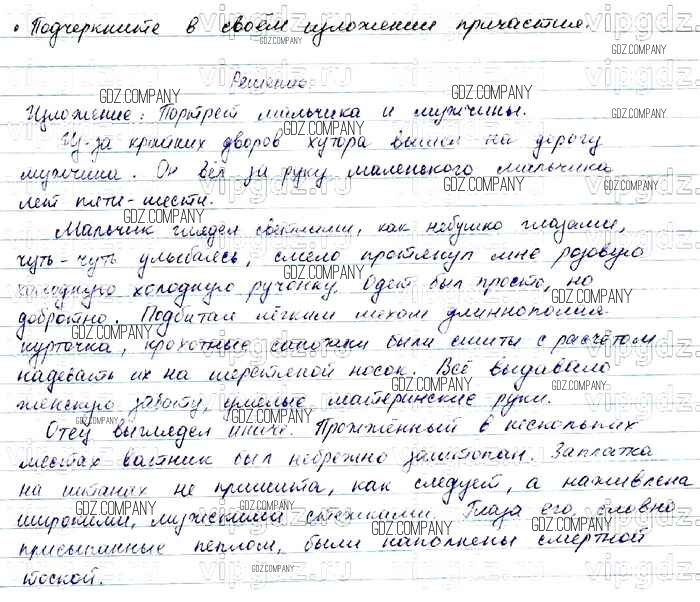 • Подчеркните в своём изложении причастия.
Решение:
Изложение: Портрет мальчика и мужчины.
Из-за крайних дворов хутора вышел на дорогу
мужчина. Он вёл за руку маленького мальчика
лет пяти-шести.
Мальчик глядел светлыми, как небушко глазами,
чуть-чуть улыбаясь, смело протянул мне розовую
холодную холодную ручонку. Одет был просто, но
добротно. Подбитая лёгким мехом длиннополая
курточка, крохотные сапожки были сшиты с расчётом
надевать их на шерстяной носок. Всё выдавало
женскую заботу, умелые материнские руки.
Отец выглядел иначе. Прожжённый в нескольких
местах ватник был небрежно заштопан. Заплатка
на штанах не пришита, как следует, а наживлена
широкими, мужскими стежками. Глаза его, словно
присыпанные пеплом, были наполнены смертной
тоской.